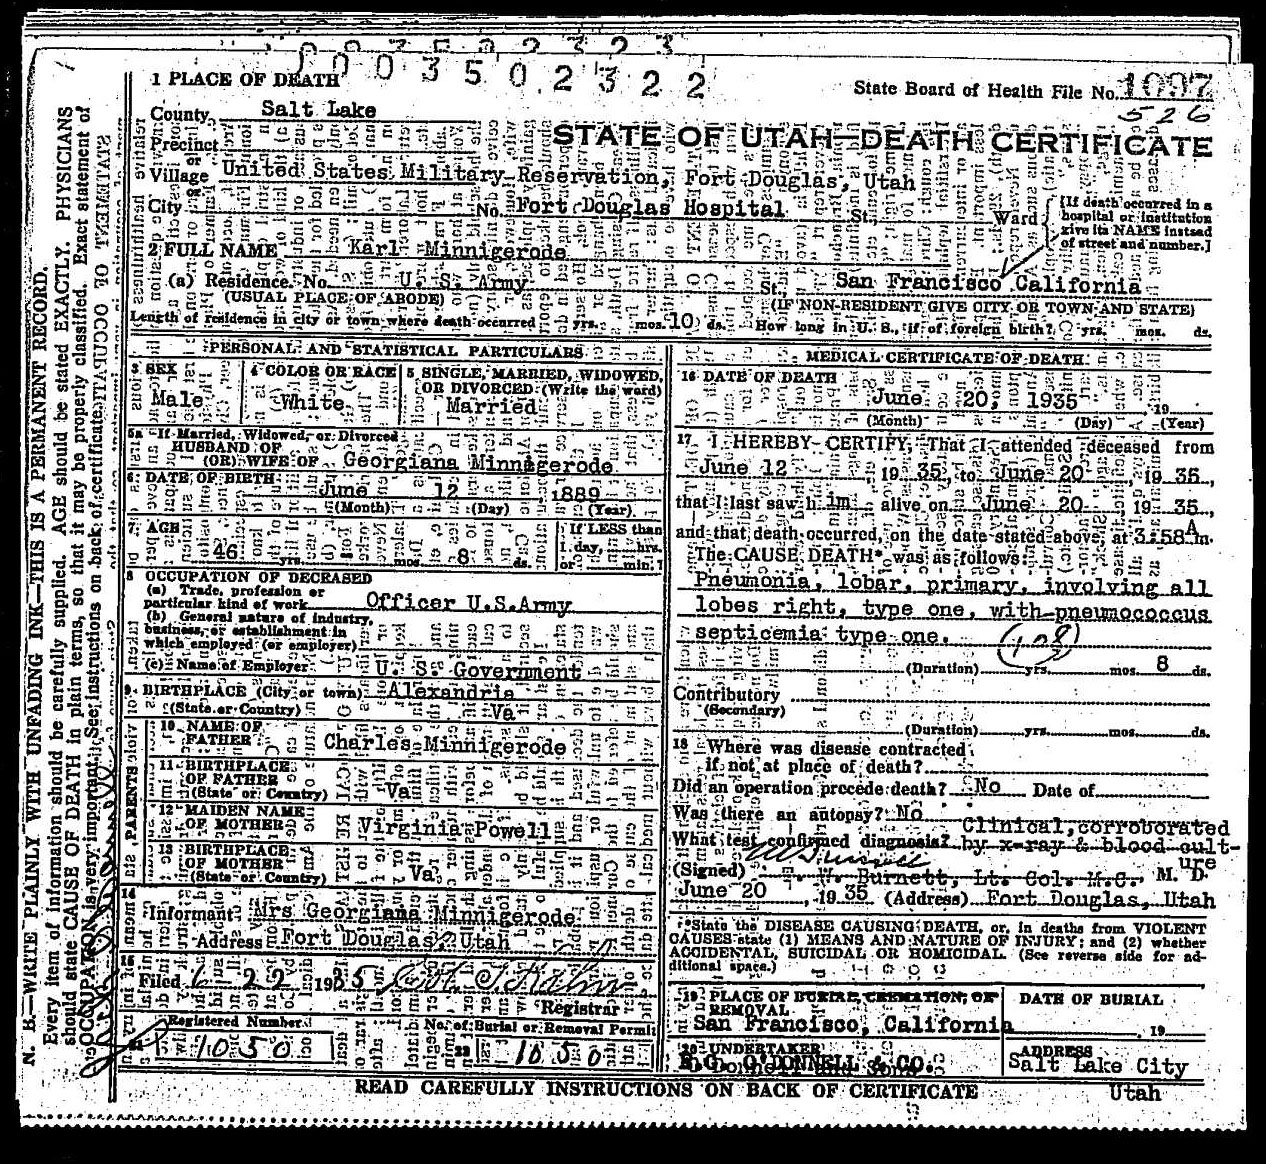 0035023 22
1 PLACE OF DEATH
State Board of Health File No. 1097
526
County Salt Lake
STATE OF UTAH—DEATH CERTIFICATE
Precinct
or
Village United States Military Reservation, Fort Douglas, Utah
or
City No. Fort Douglas Hospital St. Ward
[If death occurred in a
hospital or institution
give its NAME instead
of street and number.]
2 FULL NAME Karl Minnigerode
(a) Residence. No. U. S. Army St. San Francisco California
(USUAL PLACE OF ABODE) (IF NON-RESIDENT GIVE CITY OR TOWN AND STATE)
Length of residence in city or town where death occurred yrs. mos. 10 ds. How long in U. S., if of foreign birth? yrs. mos. ds.
PERSONAL AND STATISTICAL PARTICULARS
3 SEX
Male
4 COLOR OR RACE
White
5 SINGLE, MARRIED, WIDOWED,
OR DIVORCED (Write the word)
Married
5a If Married, Widowed, or Divorced
HUSBAND OF
(OR) WIFE OF Georgiana Minnigerode
6 DATE OF BIRTH
June 12 1889
(Month) (Day) (Year)
7 AGE
46 yrs. mos. 8 ds.
If LESS than
1 day, hrs.
or min.?
8 OCCUPATION OF DECEASED
(a) Trade, profession or
particular kind of work Officer U.S.Army
(b) General nature of industry,
business, or establishment in
which employed (or employer)
(c) Name of Employer U. S. Government
9 BIRTHPLACE (City or town) Alexandria
(State or Country) Va
PARENTS
10 NAME OF
FATHER Charles Minnigerode
11 BIRTHPLACE
OF FATHER
(State or Country) Va
12 MAIDEN NAME
OF MOTHER Virginia Powell
13 BIRTHPLACE
OF MOTHER
(State or Country) Va
14
Informant Mrs Georgiana Minnigerode
Address Fort Douglas, Utah
15
Filed 6 22 1935
Registrar
Registered Number
1050
No. of Burial or Removal Permit
22 1050
MEDICAL CERTIFICATE OF DEATH
16 DATE OF DEATH
June 20, 1935 , 19
(Month) (Day) (Year)
17 I HEREBY CERTIFY, That I attended deceased from
June 12 , 19 35, to June 20 , 19 35,
that I last saw h im alive on June 20 , 19 35,
and that death occurred, on the date stated above, at 3:58 A m.
The CAUSE DEATH* was as follows:
Pneumonia, lobar, primary, involving all
lobes right, type one, with pneumococcus
septicemia type one.
(108)
(Duration) yrs. mos. 8 ds.
Contributory
(Secondary)
(Duration) yrs. mos. ds.
18 Where was disease contracted
if not at place of death?
Did an operation precede death? No Date of
Was there an autopsy? No
What test confirmed diagnosis? Clinical, corroborated
by x-ray & blood cult-
ure
(Signed) T. W. Burnett, Lt. Col. M.C. M. D.
June 20 , 19 35 (Address) Fort Douglas, Utah
*State the DISEASE CAUSING DEATH, or, in deaths from VIOLENT
CAUSES state (1) MEANS AND NATURE OF INJURY; and (2) whether
ACCIDENTAL, SUICIDAL OR HOMICIDAL. (See reverse side for ad-
ditional space.)
19 PLACE OF BURIAL, CREMATION, OR
REMOVAL
San Francisco, California
DATE OF BURIAL
, 19
20 UNDERTAKER
O'DONNELL & CO.
ADDRESS
Salt Lake City
Utah
READ CAREFULLY INSTRUCTIONS ON BACK OF CERTIFICATE
N. B.—WRITE PLAINLY WITH UNFADING INK—THIS IS A PERMANENT RECORD.
Every item of information should be carefully supplied. AGE should be stated EXACTLY. PHYSICIANS
should state CAUSE OF DEATH in plain terms, so that it may be properly classified. Exact statement of
OCCUPATION is very important. See instructions on back of certificate.